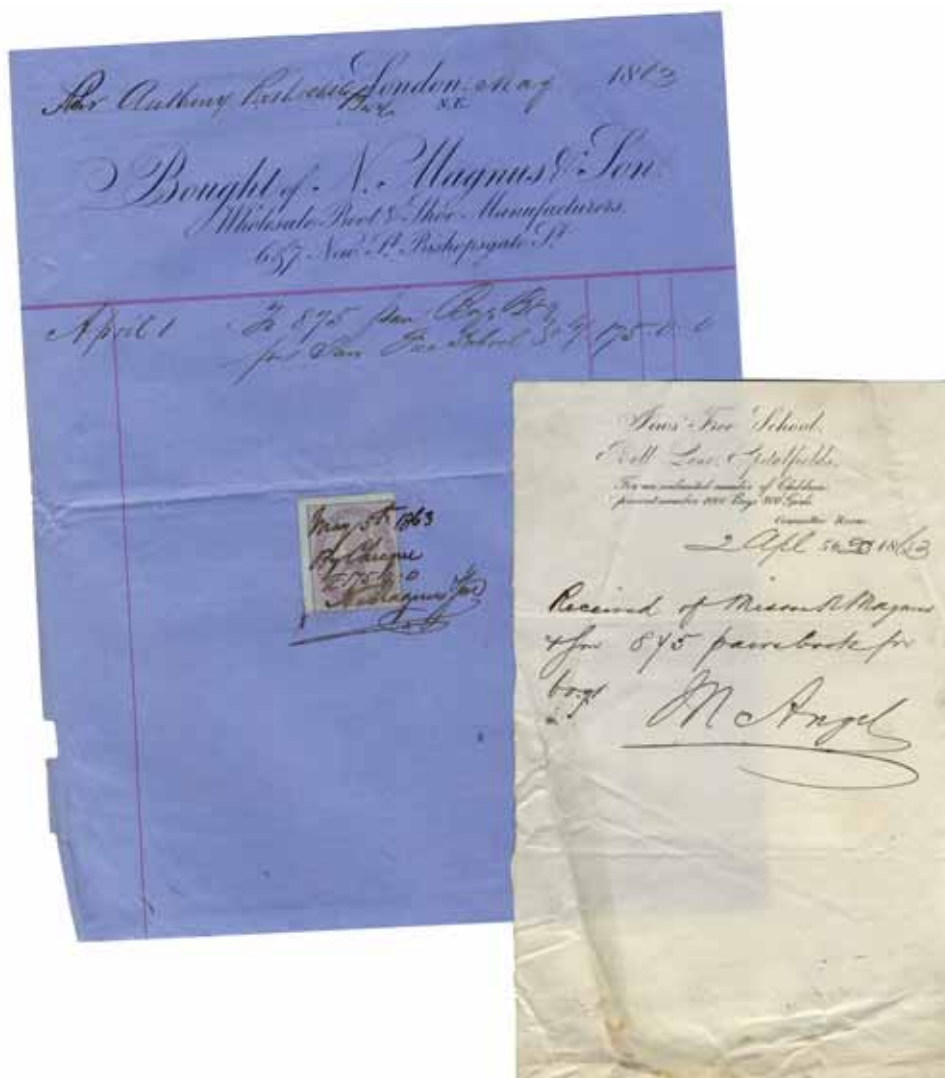 Sir Anthony Rothschild London, May 1863
Bart N.E.
Bought of N. Magnus & Son.
Wholesale Boot & Shoe Manufacturers,
6 & 7 New St. Bishopsgate St.
April 1 To 875 pair Boys Bts
for Free School 175 . 0 . 0
May 5th 1863
By Cheque
£175.0.0
N Magnus & Son
Jews' Free School,
Bell Lane, Spitalfields,
For an unlimited number of Children
present number Boys Girls
Committee Room
2 Apl 1863
Received of Messrs N Magnus
& Son 875 pairs boots for
boys
M Angel